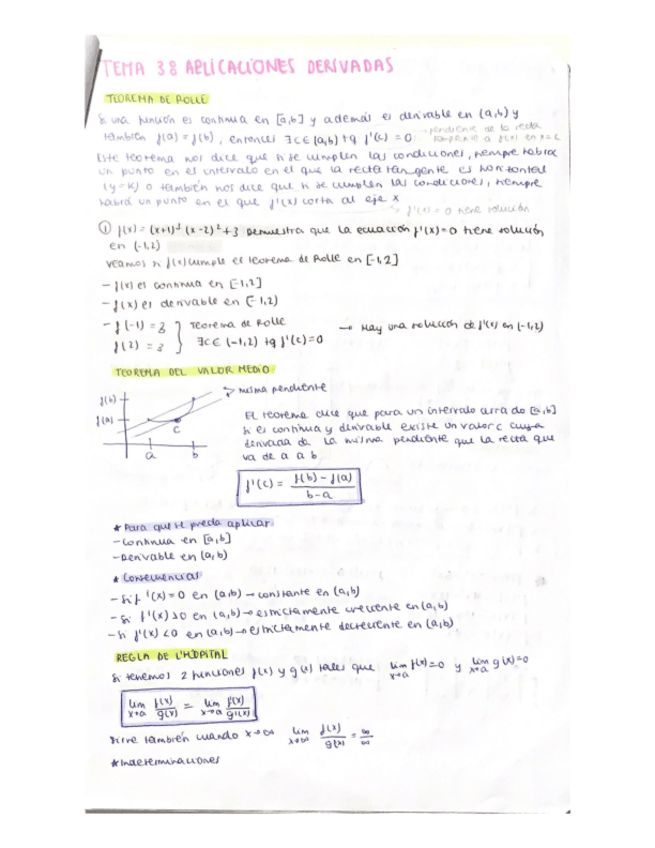 TEMA 38 APLICACIONES DERIVADAS
TEOREMA DE ROLLE
Si una función es continua en [a,b] y además es derivable en (a,b) y
también f(a) = f(b), entonces ∃ c ∈ (a,b) tq f'(c) = 0
pendiente de la recta
tangente a f(x) en x=c
Este teorema nos dice que si se cumplen las condiciones, siempre habrá
un punto en el intervalo en el que la recta tangente es horizontal
(y=K) o también nos dice que si se cumplen las condiciones, siempre
habrá un punto en el que f'(x) corta al eje x
f'(x) = 0 tiene solución
① f(x) = (x+1)³ (x-2)² + 3 Demuestra que la ecuación f'(x)=0 tiene solución
en (-1,2)
Veamos si f(x) cumple el teorema de Rolle en [-1,2]
- f(x) es continua en [-1,2]
- f(x) es derivable en (-1,2)
- f(-1) = 3 } Teorema de Rolle → Hay una solución de f'(x) en (-1,2)
f(2) = 3 } ∃ c ∈ (-1,2) tq f'(c)=0
TEOREMA DEL VALOR MEDIO
f(b)
f(a)
c
a b
→ misma pendiente
El teorema dice que para un intervalo cerrado [a,b]
si es continua y derivable existe un valor c cuya
derivada da la misma pendiente que la recta que
va de a a b
f'(c) = f(b) - f(a) / b-a
* Para que se pueda aplicar
- Continua en [a,b]
- Derivable en (a,b)
* Consecuencias
- Si f'(x) = 0 en (a,b) → constante en (a,b)
- Si f'(x) > 0 en (a,b) → estrictamente creciente en (a,b)
- Si f'(x) < 0 en (a,b) → estrictamente decreciente en (a,b)
REGLA DE L'HÔPITAL
Si tenemos 2 funciones f(x) y g(x) tales que lim x→a f(x)=0 y lim x→a g(x)=0
lim x→a f(x)/g(x) = lim x→a f'(x)/g'(x)
Sirve también cuando x→∞ lim x→∞ f(x)/g(x) = ∞/∞
* Indeterminaciones